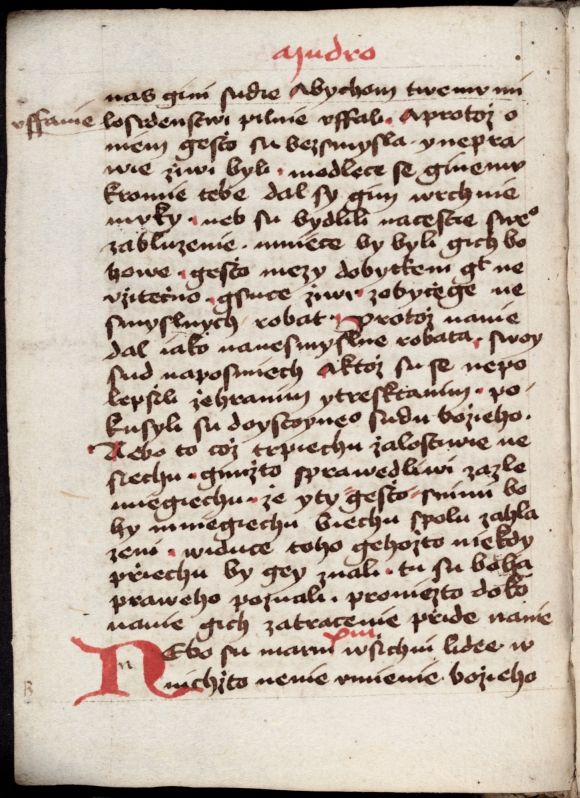 ajudro
nas gini sudie Abychom twemu mi
uffanie losrdenstwi pilnie uffali . Aprotoz o
niem gesto su bezsmysla . y nepra
wie ziwi byli . modlece se ginemu
kromie tebe dal sy gim wrchnie
muky . neb su bydlili naceste swe°
zabluzenie . mniece by byli gich bo
howe . gesto mezy dobytkem gt ne
uzitecno . gsuce ziwi . zobycege ne
smyslnych robat . Protoz nanie
dal iako nanesmyslne robata . swoy
sud naposmiech Aktoz su se nepo
lepsili zehranim ytresktanim . po
kusyli su doystoyne° sudu bozieho .
Nebo to coz trpiechu zalostiwie ne
siechu . gimizto sprawedliwi zazle
miegiechu . ze yty gesto . snimi bo
hy mniegiechu biechu spolu zahla
zeni . widuce toho gehozto niekdy
prziechu by gey znali . tu su boha
praweho poznali . proniezto doko
nanie gich zatracenie przide nanie
xiii
n Nebo su marni wsichni lidee w
nichzto nenie umienie bozieho
B